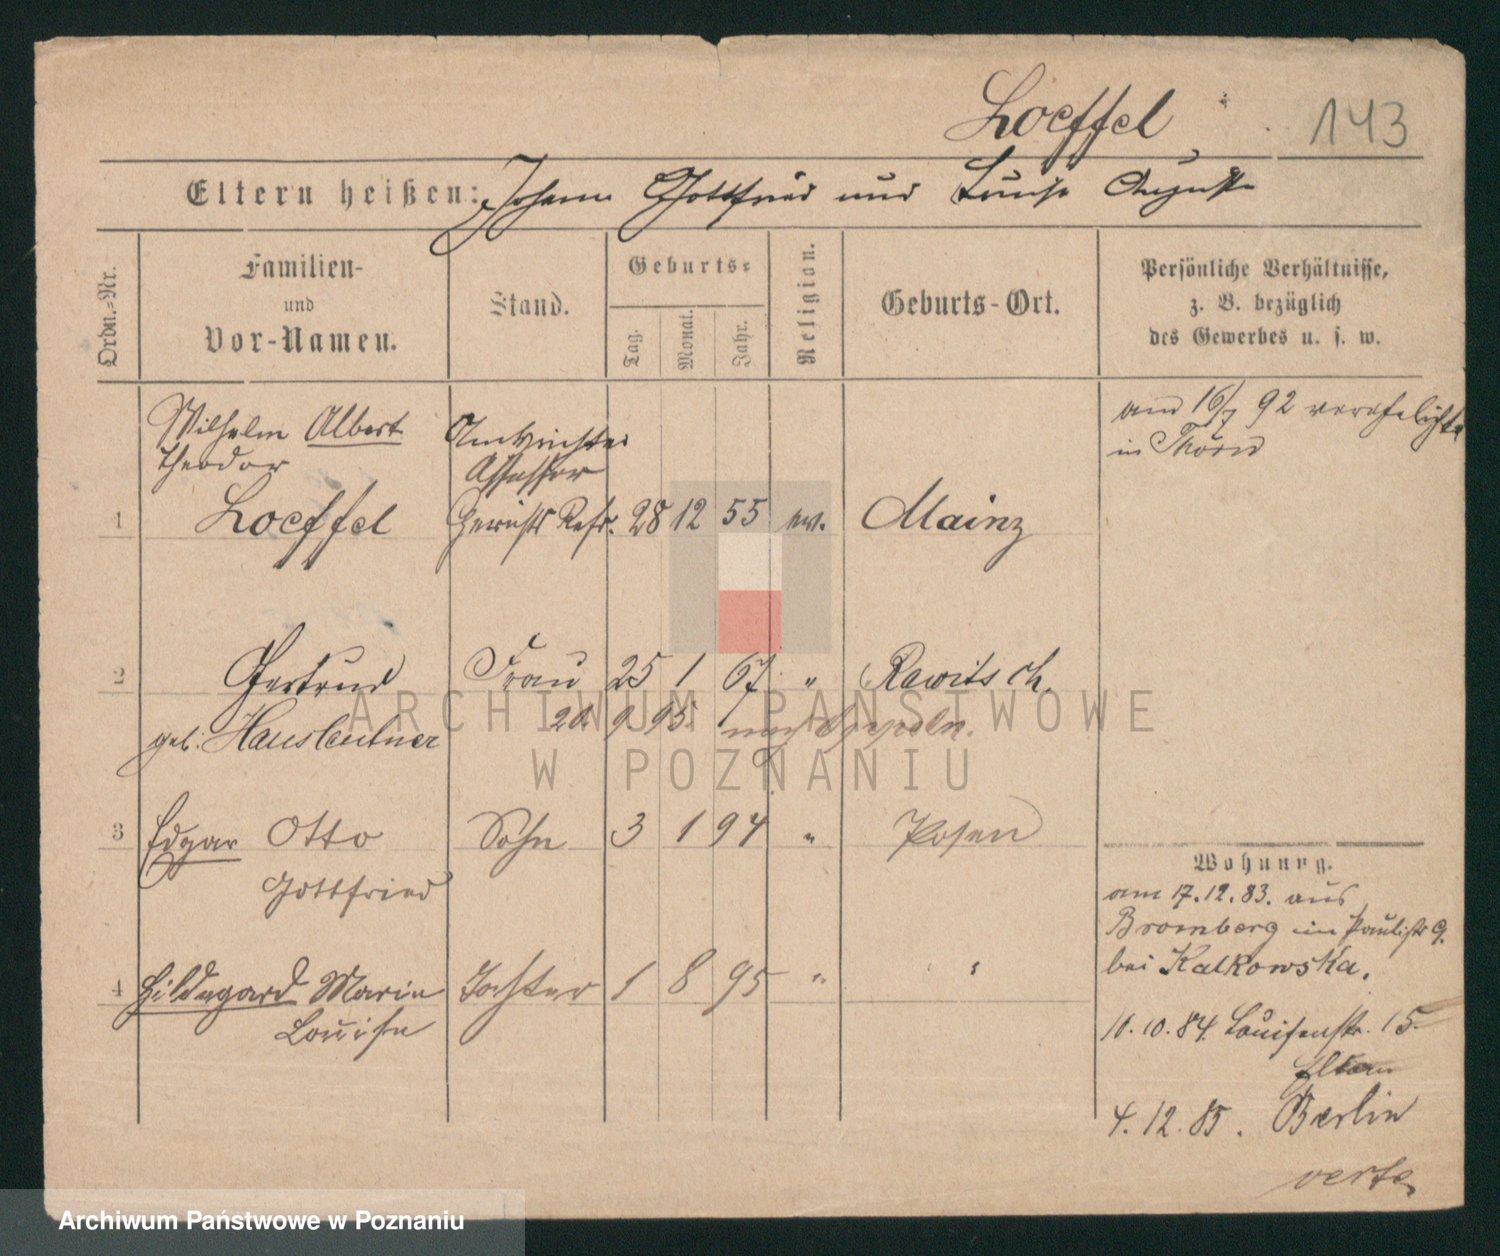 Loeffel
143
Eltern heißen: Johann Gottfried und Luise Auguste
Ordn.-Nr.
Familien-
und
Vor-Namen.
Stand.
Geburts-
Tag.
Monat.
Jahr.
Religion.
Geburts-Ort.
Persönliche Verhältnisse,
z. B. bezüglich
des Gewerbes u. s. w.
Wilhelm Albert
Theodor
Assessor
am 16/7 92 verehelicht
in Thorn
1 Loeffel Gerichts Refr. 28 12 55 ev. Mainz
2 Gertrud Frau 25 1 67 " Rawitsch.
geb. Hausleutner 20. 9 95. nach Oppeln.
3 Edgar Otto Sohn 3 1 94 " Posen
Gottfried
4 Hildegard Marie Tochter 1 8 95 " "
Louise
Wohnung.
am 17.12.83. aus
Bromberg in Paulistr 9.
bei Kalkowska.
11.10.84. Louisenstr. 15.
Eltern
4.12.85. Berlin
verte
ARCHIWUM PAŃSTWOWE
W POZNANIU
Archiwum Państwowe w Poznaniu